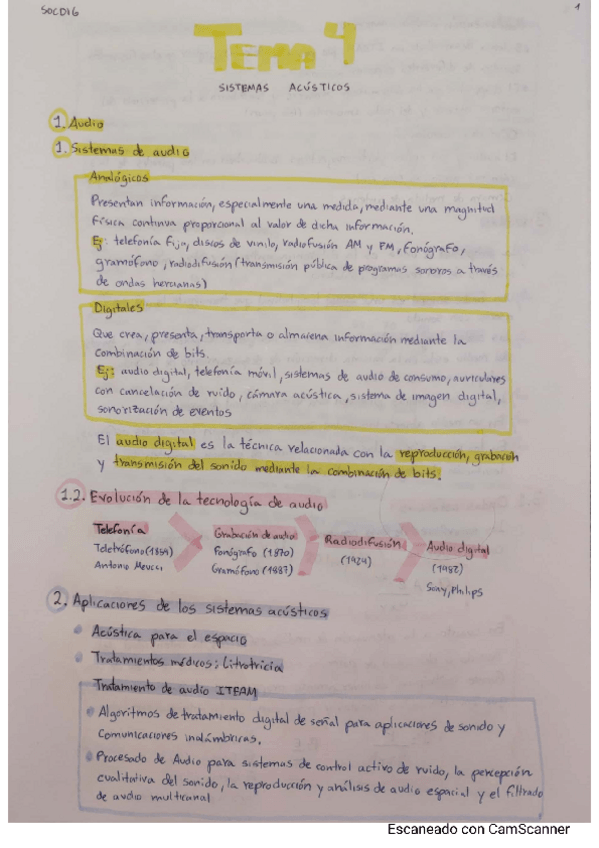 SOCDIG
1
TEMA 4
SISTEMAS ACÚSTICOS
1. Audio
1. Sistemas de audio
Analógicos
Presentan información, especialmente una medida, mediante una magnitud
física continua proporcional al valor de dicha información.
Ej: telefonía fija, discos de vinilo, radiofusión AM y FM, fonógrafo,
gramófono, radiodifusión (transmisión pública de programas sonoros a través
de ondas hercianas)
Digitales
Que crea, presenta, transporta o almacena información mediante la
combinación de bits.
Ej: audio digital, telefonía móvil, sistemas de audio de consumo, auriculares
con cancelación de ruido, cámara acústica, sistema de imagen digital,
sonorización de eventos
El audio digital es la técnica relacionada con la reproducción, grabación
y transmisión del sonido mediante la combinación de bits.
1.2. Evolución de la tecnología de audio
Telefonía
Teletrófono (1854)
Antonio Meucci
Grabación de audio
Fonógrafo (1870)
Gramófono (1887)
Radiodifusión
(1924)
Audio digital
(1982)
Sony, Philips
2. Aplicaciones de los sistemas acústicos
Acústica para el espacio
Tratamientos médicos: Litrotricia
Tratamiento de audio ITEAM
Algoritmos de tratamiento digital de señal para aplicaciones de sonido y
comunicaciones inalámbricas.
Procesado de Audio para sistemas de control activo de ruido, la percepción
cualitativa del sonido, la reproducción y análisis de audio espacial y el filtrado
de audio multicanal
Escaneado con CamScanner